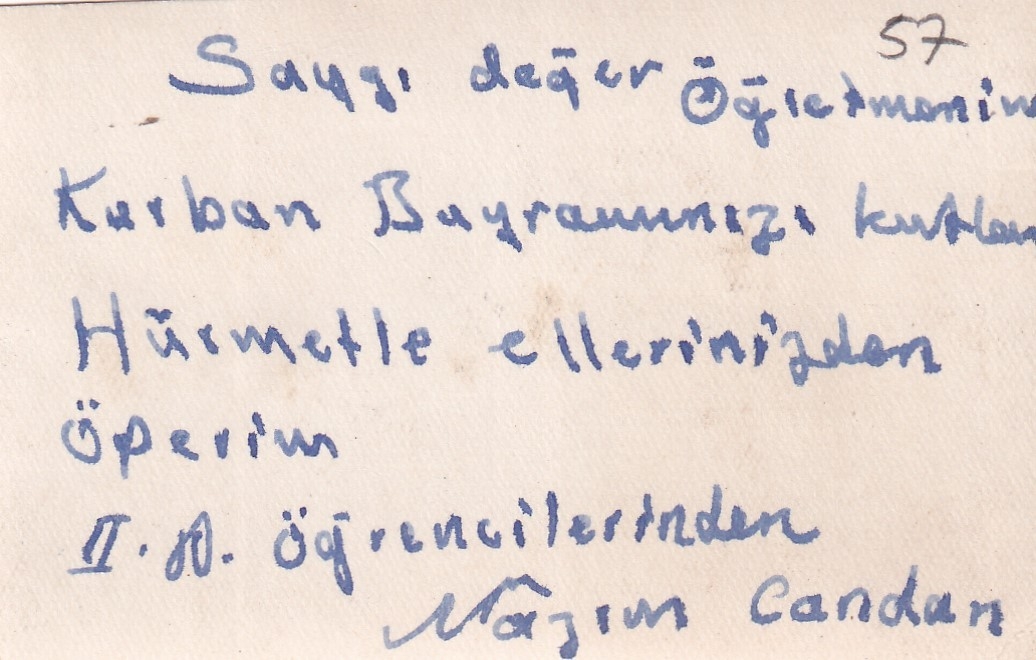 57
Saygı değer Öğretmenim
Kurban Bayramınızı kutlar
Hürmetle ellerinizden
Öperim
II. A. Öğrencilerinden
Nâzım Candan